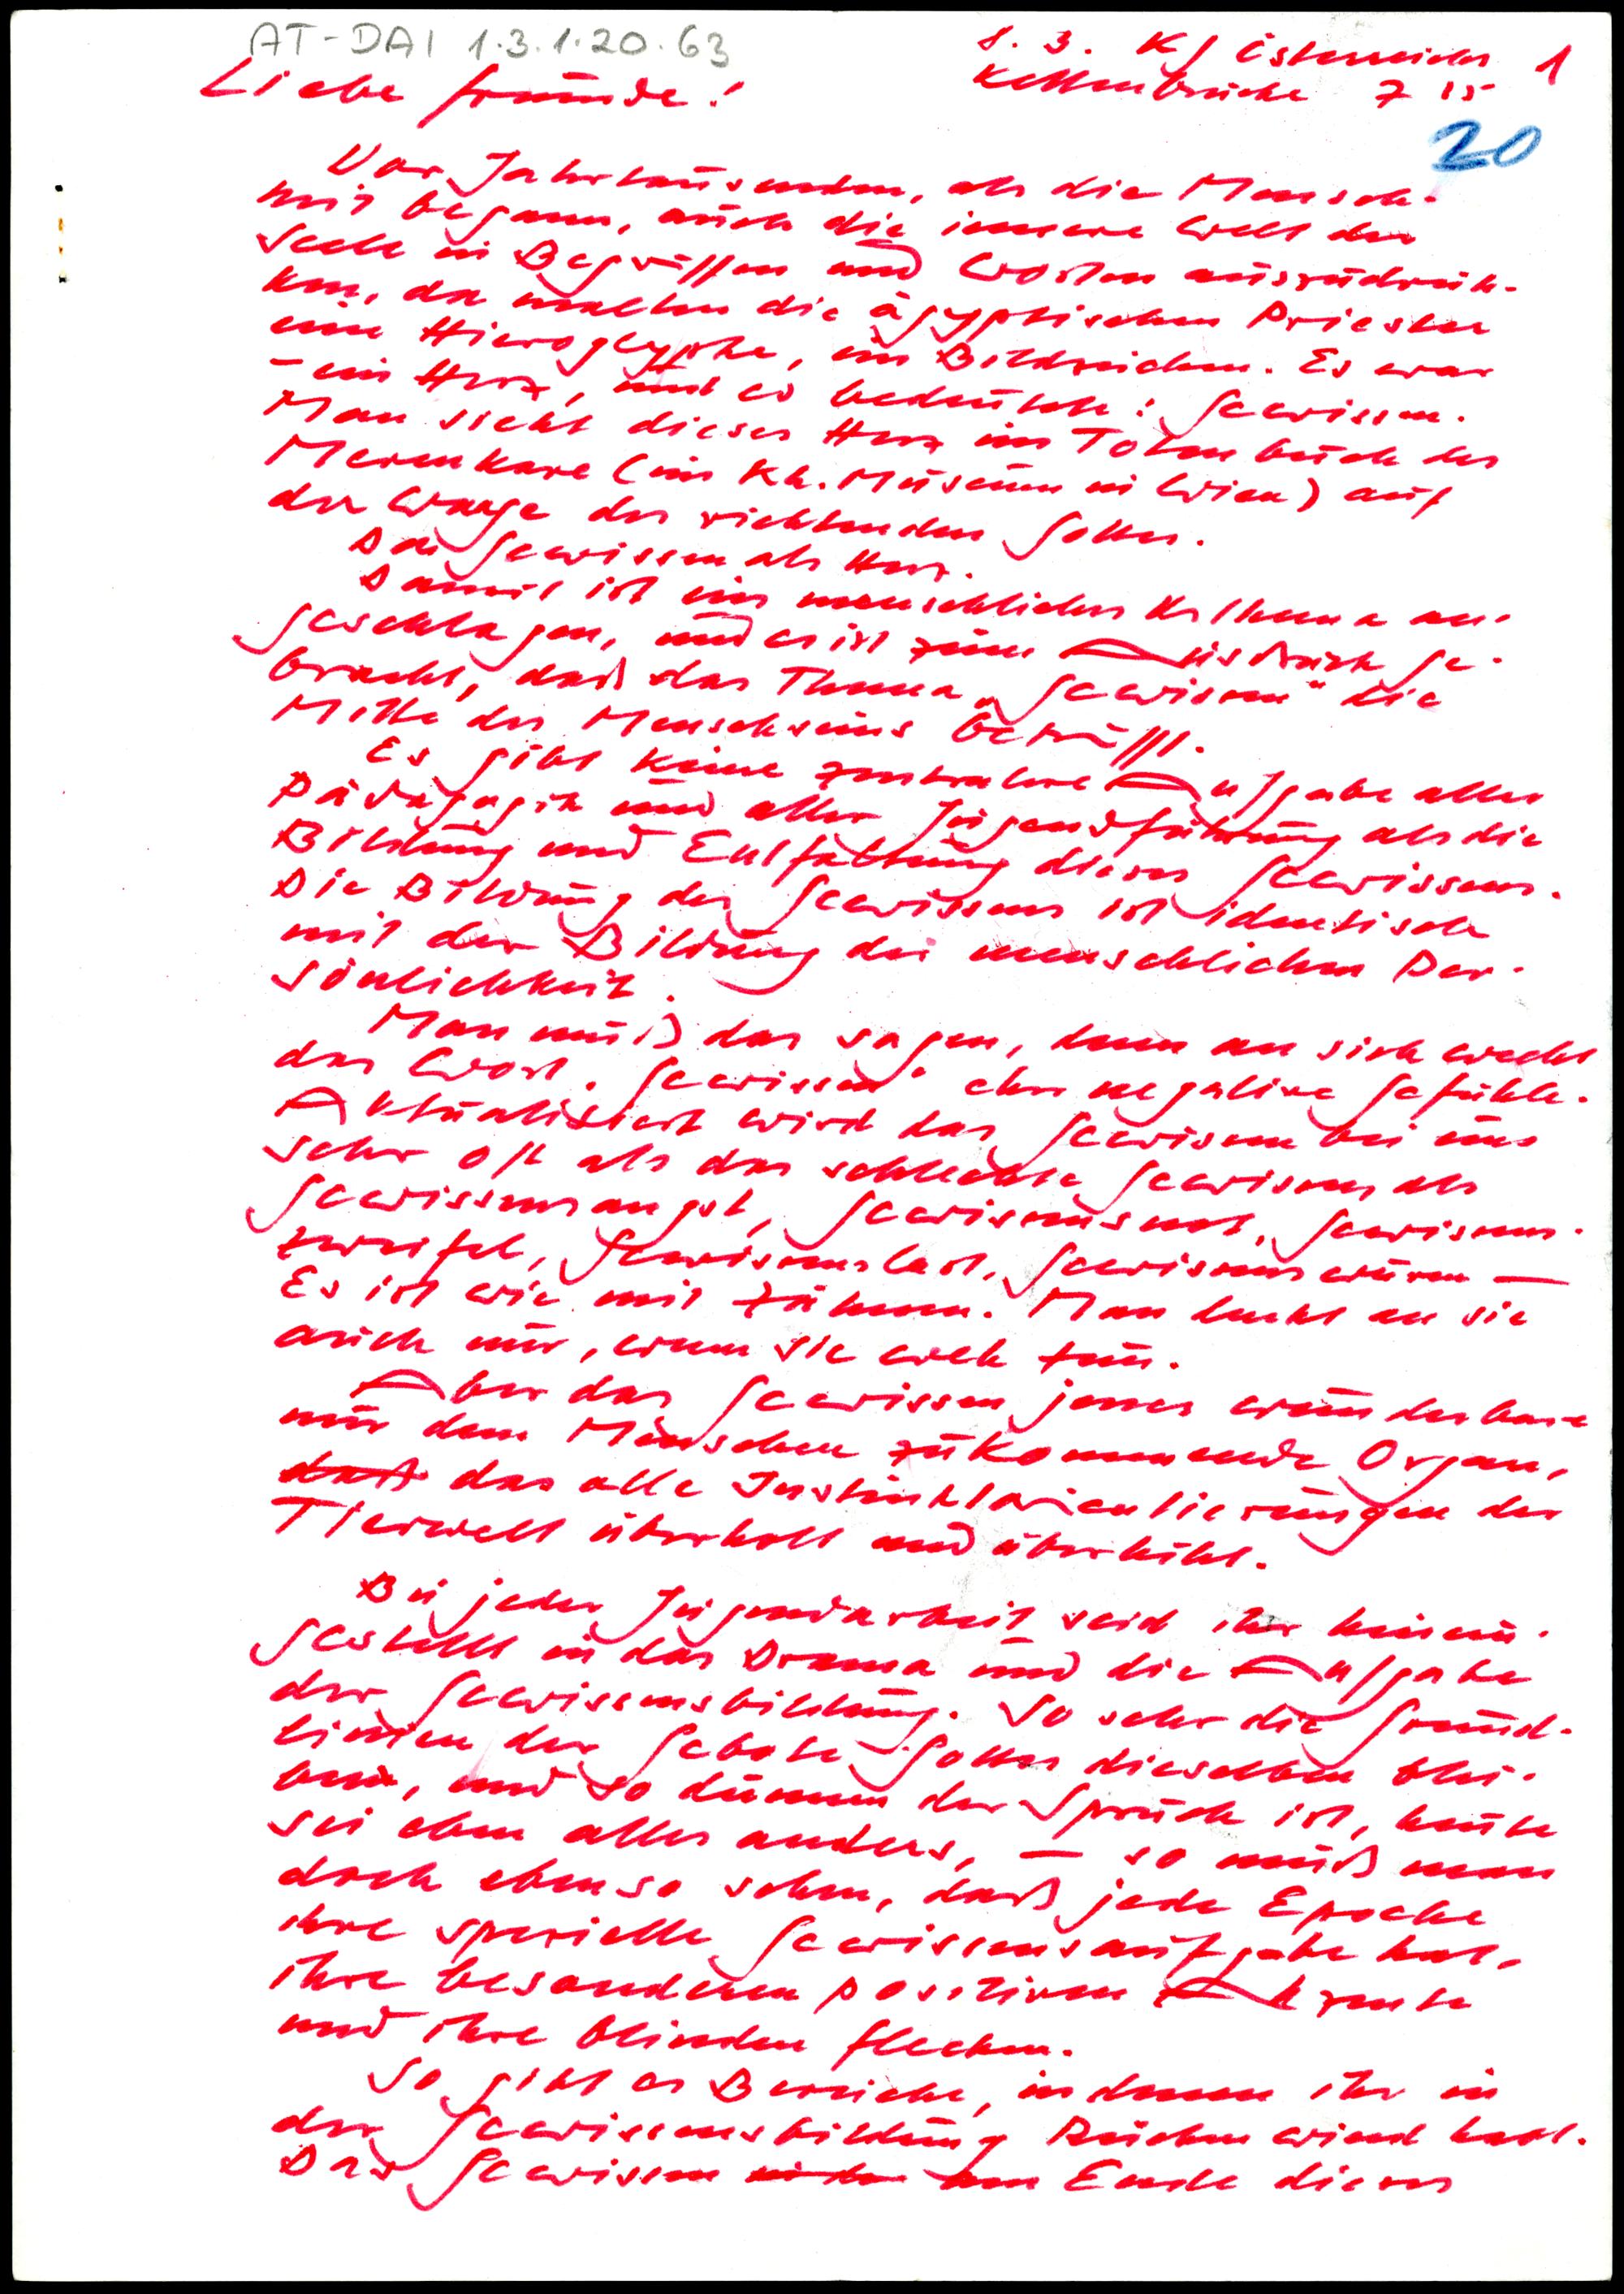 AT-DAI 1.3.1.20.63
1. 3. KJ Österreichs 1
Kettenbrücke 7 15
Liebe Freunde!
20
Vor Jahrtausenden, als die Mensch-
heit begann, auch die innere Welt der
Seele in Begriffen und Worten auszudrük-
ken, da malten die ägyptischen Priester
eine Hieroglyphe, ein Bildzeichen. Es war
- ein Herz, und es bedeutete: Gewissen.
Man sieht dieses Herz im Totenbuch des
Merenkare (im Kh. Museum in Wien) auf
der Waage des richtenden Gottes.
Das Gewissen als Herz.
Damit ist ein menschliches Urthema an-
geschlagen, und es ist zum Ausdruck ge-
bracht, daß das Thema "Gewissen" die
Mitte des Menschseins betrifft.
Es gibt keine zentralere Aufgabe aller
Pädagogik und aller Jugendführung als die
Bildung und Entfaltung dieses Gewissens.
Die Bildung des Gewissens ist identisch
mit der Bildung der menschlichen Per-
sönlichkeit.
Man muß das sagen, denn an sich weckt
das Wort "Gewissen" eher negative Gefühle.
Aktualisiert wird das Gewissen bei uns
sehr oft als das schlechte Gewissen als
Gewissensangst, Gewissensnot, Gewissens-
zweifel, Gewissenslast, Gewissenswurm —
Es ist wie mit Zähnen. Man denkt an sie
auch nur, wenn sie weh tun.
Aber das Gewissen jenes wunderbare
nur dem Menschen zukommende Organ,
das alle Instinktorientierungen der
Tierwelt überholt und überhöht.
Bei jeder Jugendarbeit seid ihr hinein-
gestellt in das Drama und die Aufgabe
der Gewissensbildung. So sehr die Grund-
linien der Gebote Gottes dieselben blei-
ben, und so dumm der Spruch ist, heute
sei eben alles anders, — so muß man
doch ebenso sehen, daß jede Epoche
ihre spezielle Gewissensaufgabe hat,
ihre besonderen positiven Akzente
und ihre blinden Flecken.
So gibt es Bereiche, in denen ihr in
der Gewissensbildung Rückenwind habt.
Das Gewissen am Ende dieses